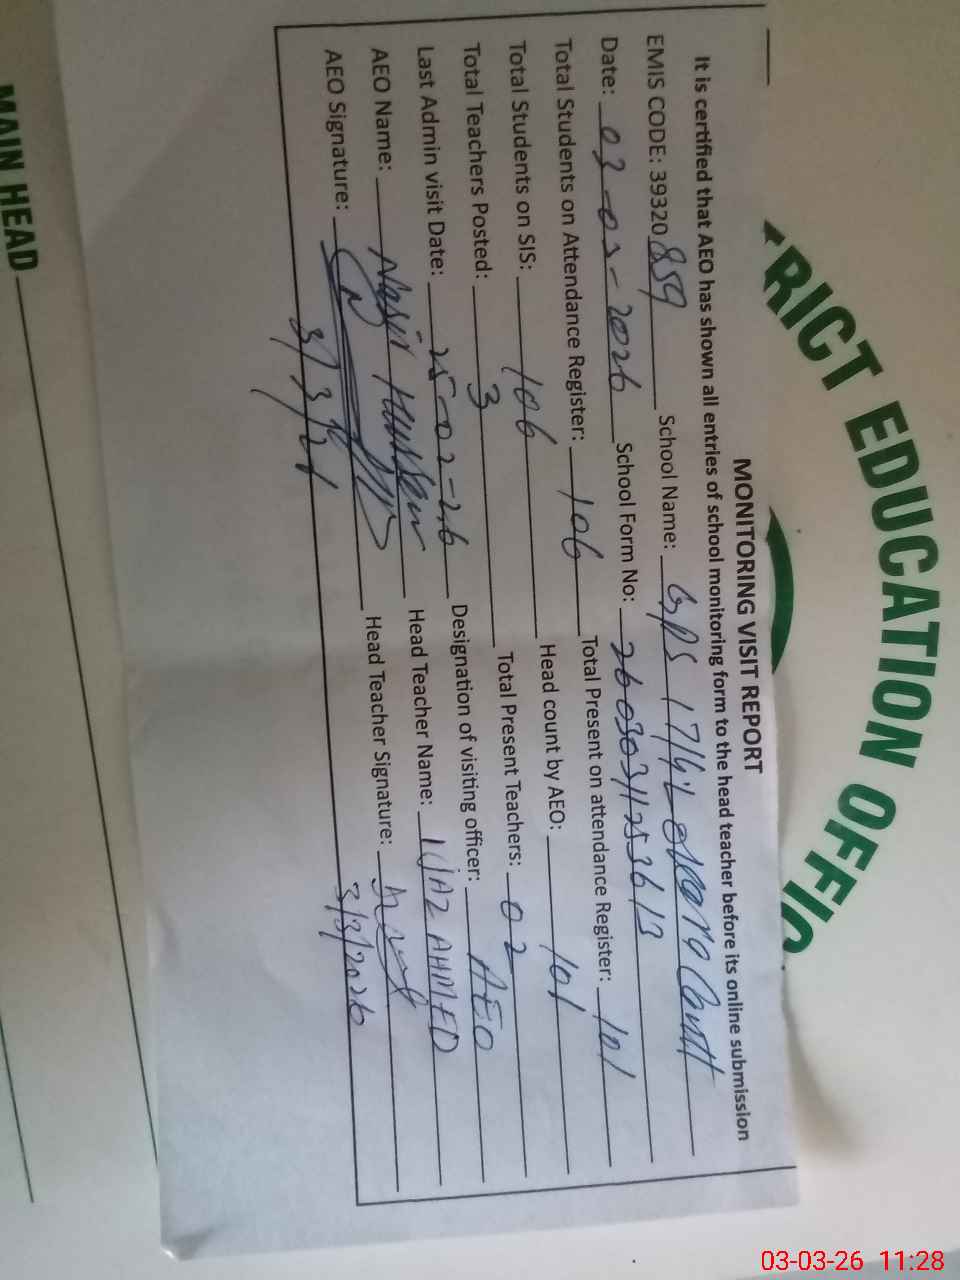 RICT EDUCATION OFFIC
MONITORING VISIT REPORT
It is certified that AEO has shown all entries of school monitoring form to the head teacher before its online submission
EMIS CODE: 39320 859 School Name: GPS 17/4-L Okara Cantt
Date: 03-03-2026 School Form No: 26030311253613
Total Students on Attendance Register: 106 Total Present on attendance Register: 101
Total Students on SIS: 106 Head count by AEO: 101
Total Teachers Posted: 3 Total Present Teachers: 02
Last Admin visit Date: 25-02-26 Designation of visiting officer: AEO
AEO Name: Nasir Hussain Head Teacher Name: IJAZ AHMED
AEO Signature: Head Teacher Signature:
3/3/26 3/3/2026
MAIN HEAD
03-03-26 11:28